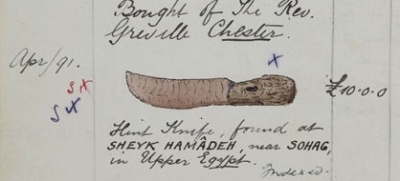 Bought of The Rev.
Greville Chester.
Apr/91.
X
S X
S X
£10.0.0
Flint Knife, found at
SHEYK HAMÂDEH, near SOHAG,
in Upper Egypt.
Indexed.